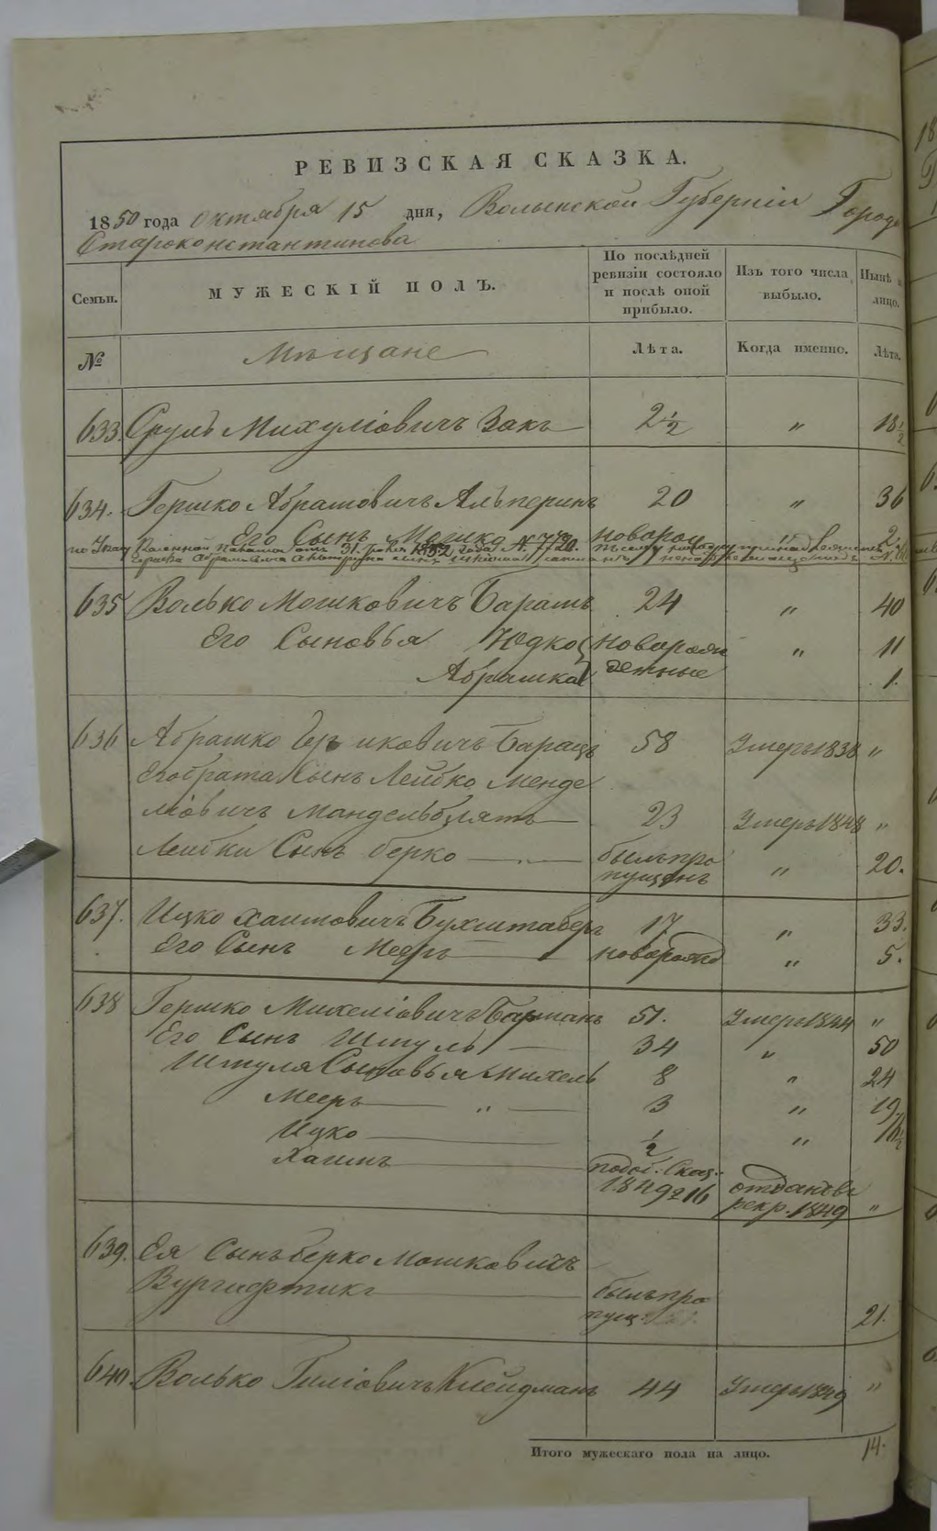 РЕВИЗСКАЯ СКАЗКА.
1850 года Октября 15 дня, Волынской Губерніи Города
Староконстантинова
Семьи. МУЖЕСКІЙ ПОЛЪ. По послѣдней ревизіи состояло и послѣ оной прибыло. Изъ того числа выбыло. Нынѣ лицо.
№ Мѣщане Лѣта. Когда именно. Лѣта.
633. Сруль Михуліовичъ Закъ 2½ " 18½
634. Гершко Абрамовичъ Альперинъ 20 " 36
Его Сынъ Мошко новорож " 2.
Казенной Палаты отъ 31. 1852 года №
635 Волько Мошковичъ Барамъ 24 " 40
Его Сыновья Юдко новорож " 11
Абрашка денные 1.
636 Абрашко иковичъ Барацъ 58 Умеръ 1838 "
Его брата Сынъ Лейбко Менде
ліовичъ Мандельблятъ 23 Умеръ 1848 "
Лейбки Сынъ Берко былъ про
пущенъ " 20.
637. Ицко Хаимовичъ Бухштаберъ 17 " 33.
Его Сынъ Мееръ новорожд " 5.
638 Гершко Михеліовичъ Барманъ 51. Умеръ 1844 "
Его Сынъ Шмуль 34 " 50
Шмуля Сыновья Михель 8 " 24
Мееръ " 3 " 19
Ицко ½ " 16½
Хаимъ подоб. Сказ. отданъ въ
1849 г 16 рекр. 1849 "
639. Ея Сынъ Берко Мошковичъ
Вургафтикъ былъ про
пущ. 21.
640. Волько Гиліовичъ Клейдманъ 44 Умеръ 1849 "
Итого мужескаго пола на лицо. 14.